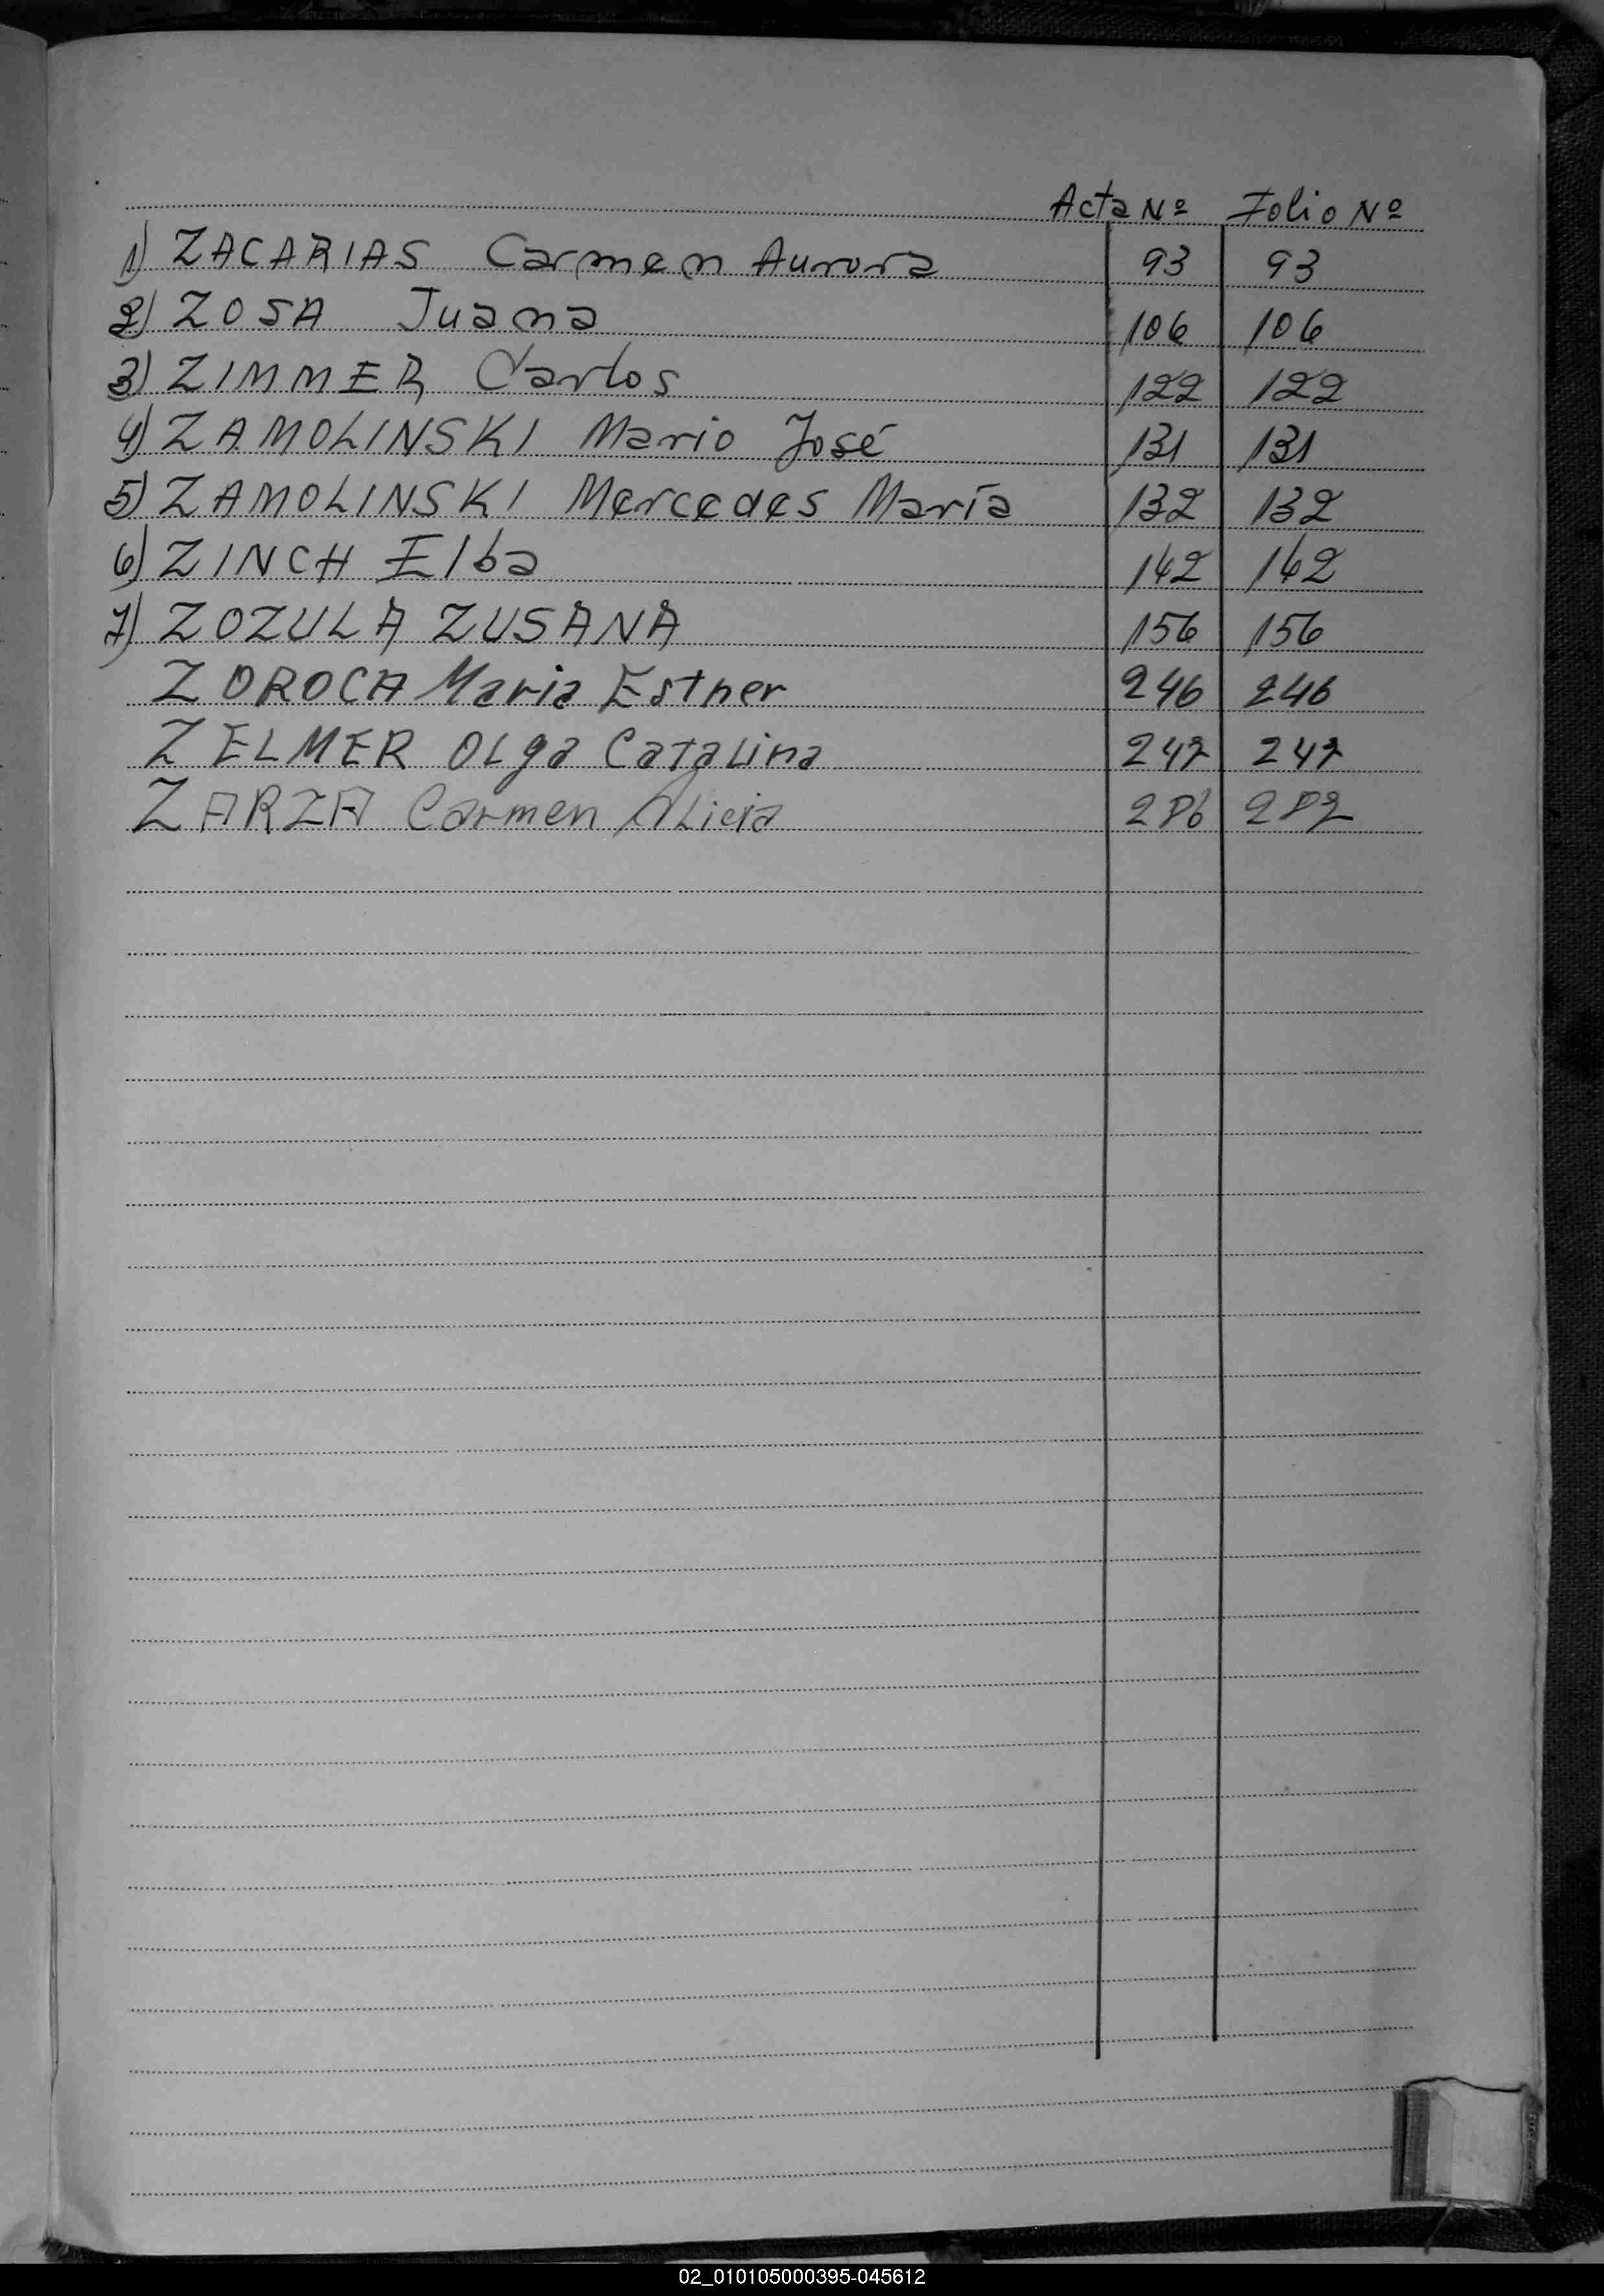 Acta Nº Folio Nº
1) ZACARIAS Carmen Aurora 93 93
2) ZOSA Juana 106 106
3) ZIMMER Carlos 122 122
4) ZAMOLINSKI Mario José 131 131
5) ZAMOLINSKI Mercedes María 132 132
6) ZINCH Elba 142 142
7) ZOZULA ZUSANA 156 156
ZOROCA Maria Esther 246 246
ZELMER OLga CataLina 247 247
ZARZA Carmen ALicia 286
02_010105000395-045612